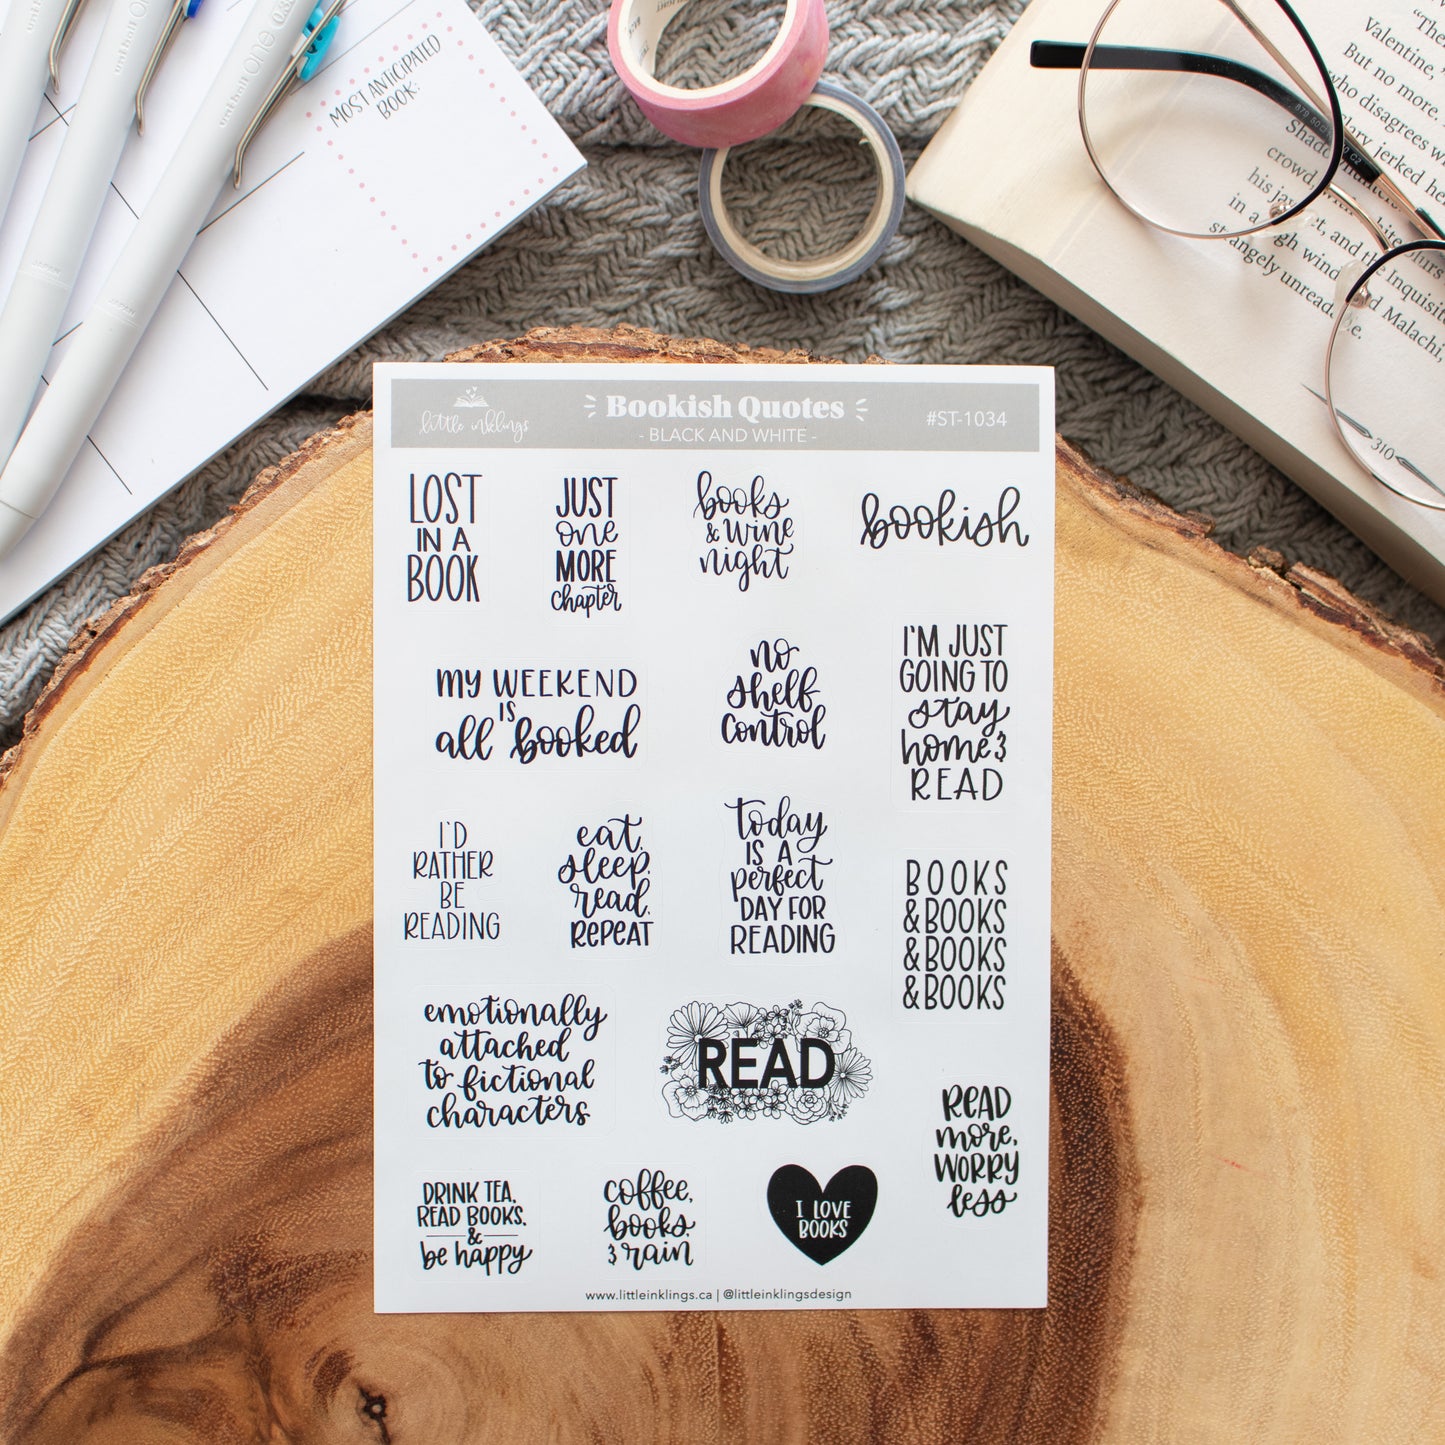 uniball One
uniball One 0.38
JAPAN
JAPAN
MOST ANTICIPATED
BOOK:
"The
Valentine,
But no more.
who disagrees
jerked
Shad
crowd,
his jav et, and the Inquisit
in a gh wind d Malachi,
strangely unread e.
310
little inklings
Bookish Quotes
- BLACK AND WHITE -
#ST-1034
LOST
IN A
BOOK
JUST
one
MORE
chapter
books
& wine
night
bookish
MY WEEKEND
IS
all booked
no
shelf
control
I'M JUST
GOING TO
stay
home &
READ
I'D
RATHER
BE
READING
eat.
sleep.
read.
REPEAT
today
IS A
perfect
DAY FOR
READING
BOOKS
&BOOKS
&BOOKS
&BOOKS
emotionally
attached
to fictional
characters
READ
READ
more,
WORRY
less
DRINK TEA,
READ BOOKS,
&
be happy
coffee,
books,
& rain
I LOVE
BOOKS
www.littleinklings.ca | @littleinklingsdesign